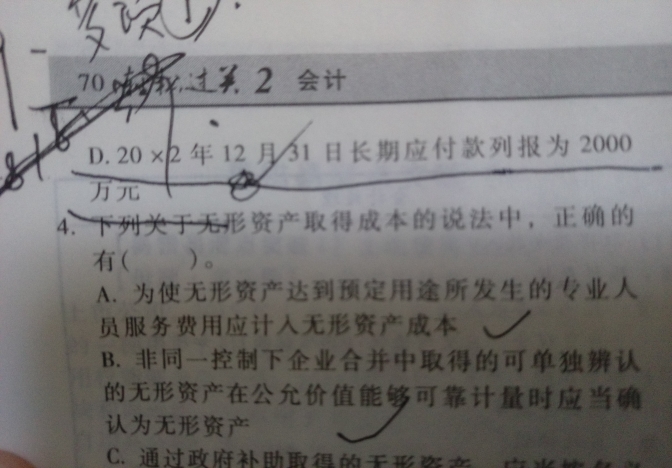 多项
70 过关 2 会计
D. 20×2年12月31日长期应付款列报为2000
万元
4. 下列关于无形资产取得成本的说法中，正确的
有（ ）。
A. 为使无形资产达到预定用途所发生的专业人
员服务费用应计入无形资产成本
B. 非同一控制下企业合并中取得的可单独辨认
的无形资产在公允价值能够可靠计量时应当确
认为无形资产
C. 通过政府补助取得的无形资产，应当按